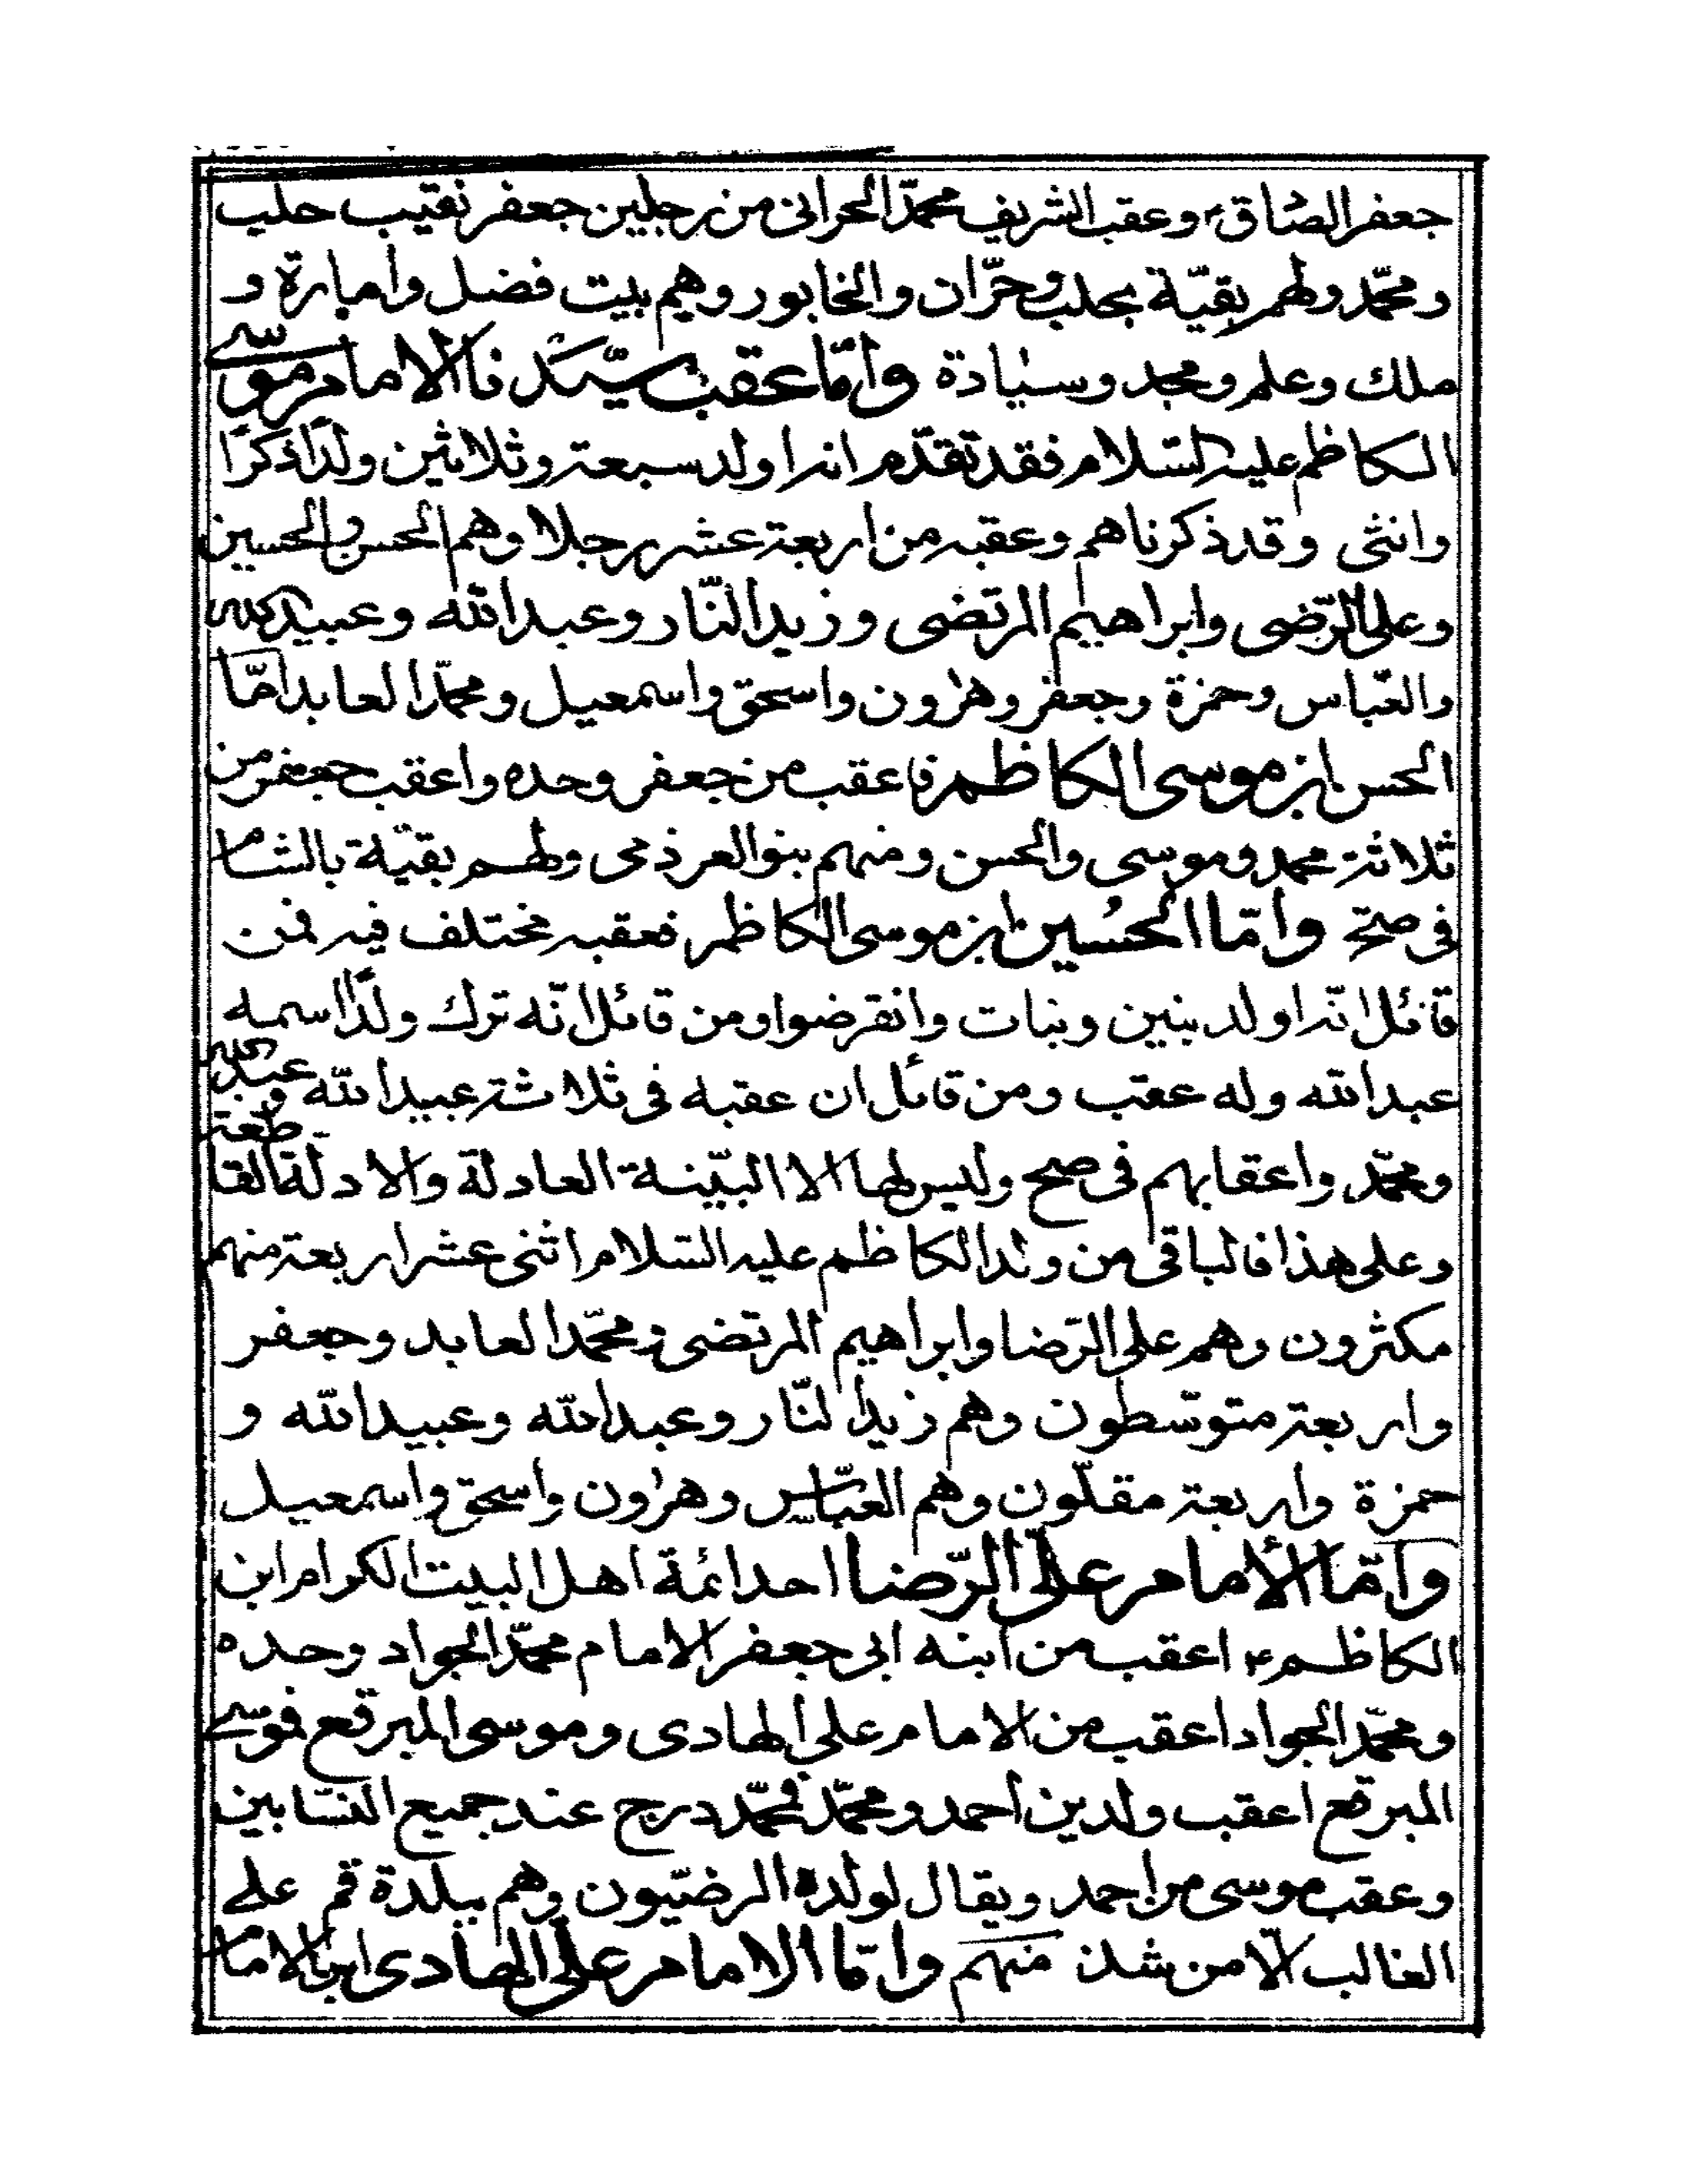 جعفر الصادق ؑ وعقب الشريف محمّد الحرانى من رجلين جعفر نقيب حلب
ومحمّد ولهم بقيّة بحلب وحرّان والخابور وهم بيت فضل وامارة و
ملك وعلم ومجد وسيادة وامّا عقب سيّدنا الامام موسى
الكاظم عليه السّلام فقد تقدّم انه اولد سبعة وثلاثين ولدًا ذكرًا
وانثى وقد ذكرناهم وعقبه من اربعة عشر رجلا وهم الحسن والحسين
وعلى الرّضى وابراهيم المرتضى وزيد النّار وعبد الله وعبيد الله
والعبّاس وحمزة وجعفر وهرون واسحق واسمعيل ومحمّد العابد امّا
الحسن ابن موسى الكاظم فاعقب من جعفر وحده واعقب جعفر من
ثلاثة محمد وموسى والحسن ومنهم بنو العرذمى ولهم بقيّة بالشام
فى صح وامّا الحسين ابن موسى الكاظم فعقبه مختلف فيه فمن
قائل انّه اولد بنين وبنات وانقرضوا ومن قائل انّه ترك ولدًا اسمه
عبد الله وله عقب ومن قائل ان عقبه فى ثلاثة عبيد الله وعبد الله
ومحمّد واعقابهم فى صح وليس لها الا البيّنة العادلة والادلّة القاطعة
وعلى هذا فالباقى من ولد الكاظم عليه السّلام اثنى عشر اربعة منهم
مكثرون وهم على الرّضا وابراهيم المرتضى ومحمّد العابد وجعفر
واربعة متوسّطون وهم زيد النّار وعبد الله وعبيد الله و
حمزة واربعة مقلّون وهم العبّاس وهرون واسحق واسمعيل
وامّا الأمام علىّ الرّضا احد ائمة اهل البيت الكرام ابن
الكاظم ؑ اعقب من ابنه ابى جعفر الامام محمّد الجواد وحده
ومحمّد الجواد اعقب من الامام على الهادى وموسى المبرقع فموسى
المبرقع اعقب ولدين احمد ومحمّد فمحمّد درج عند جميع النسّابين
وعقب موسى من احمد ويقال لولده الرضيّون وهم ببلدة قم على
الغالب الّا من شذ منهم وامّا الامام على الهادى ابن الامام